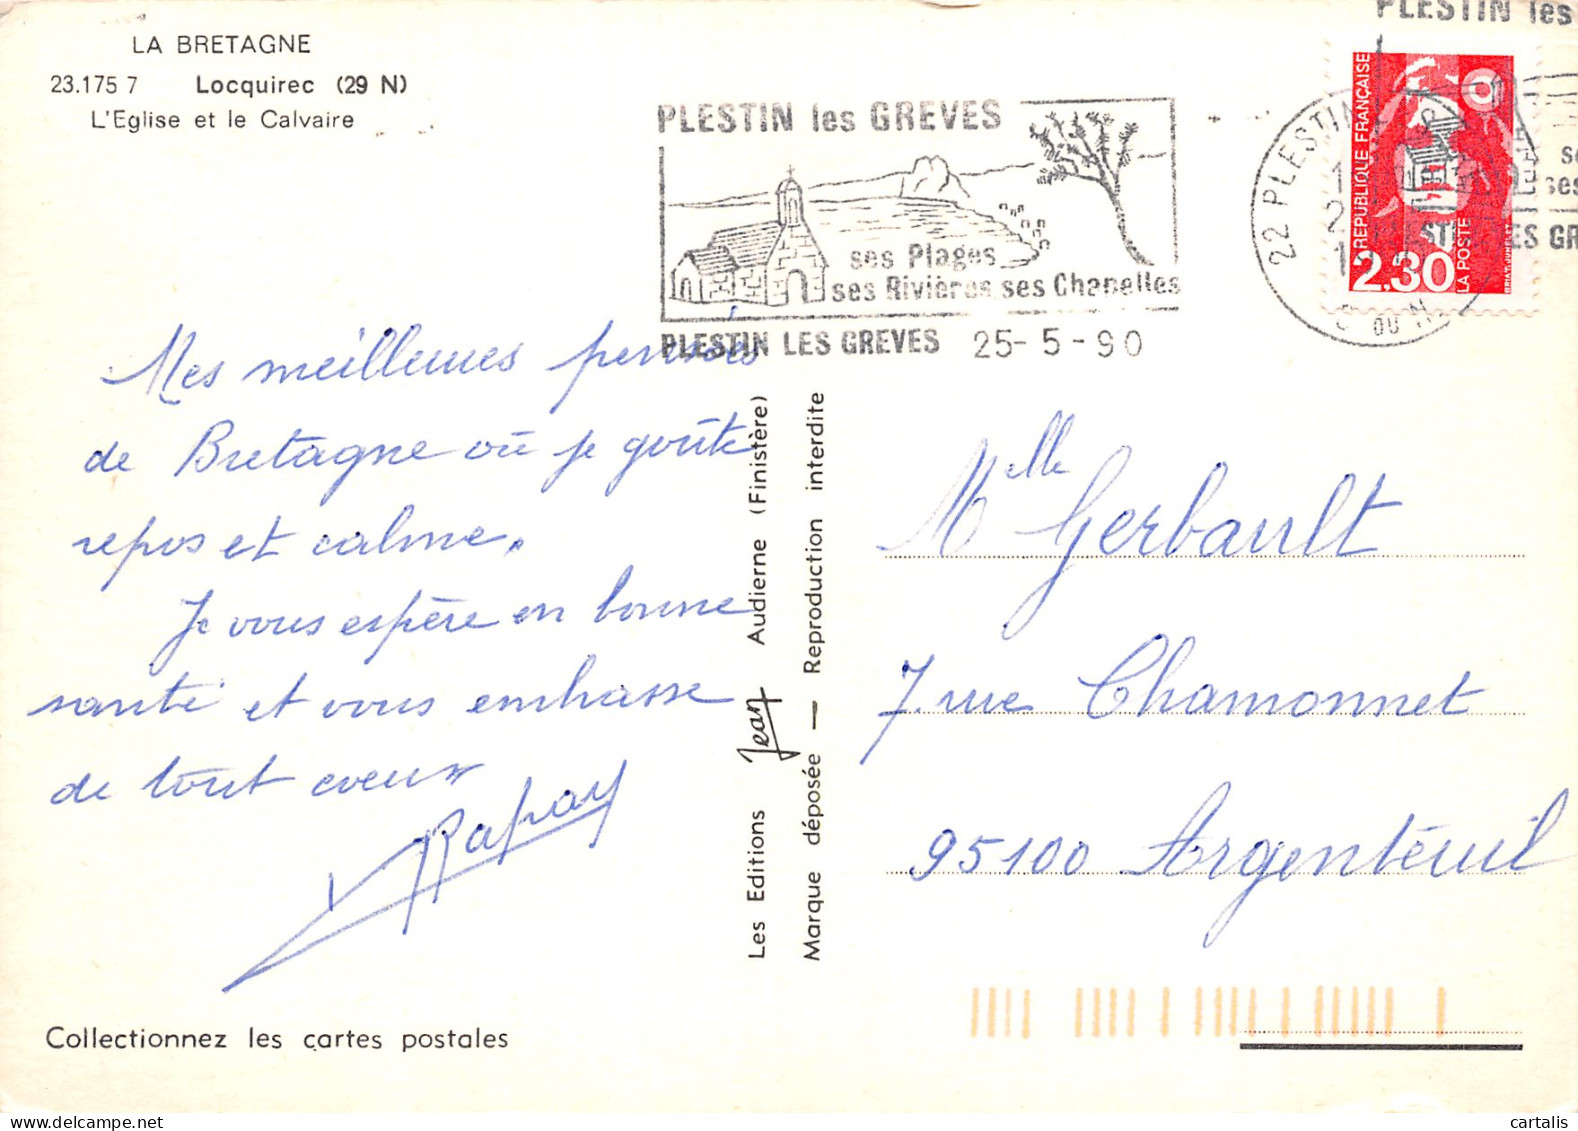 LA BRETAGNE
23.175 7 Locquirec (29 N)
L'Eglise et le Calvaire
PLESTIN les GREVES
ses Plages
ses Rivières ses Chapelles
PLESTIN LES GREVES 25-5-90
PLESTIN les
22 PLESTIN
C DU N
REPUBLIQUE FRANÇAISE
2,30
LA POSTE
Mes meilleures pensées
de Bretagne où je goûte
repos et calme.
Je vous espère en bonne
santé et vous embrasse
de tout coeur
Les Editions Jean Audierne (Finistère)
Marque déposée — Reproduction interdite
Melle Gerbault
7 rue Chamonnet
95100 Argenteuil
Collectionnez les cartes postales
cartalis